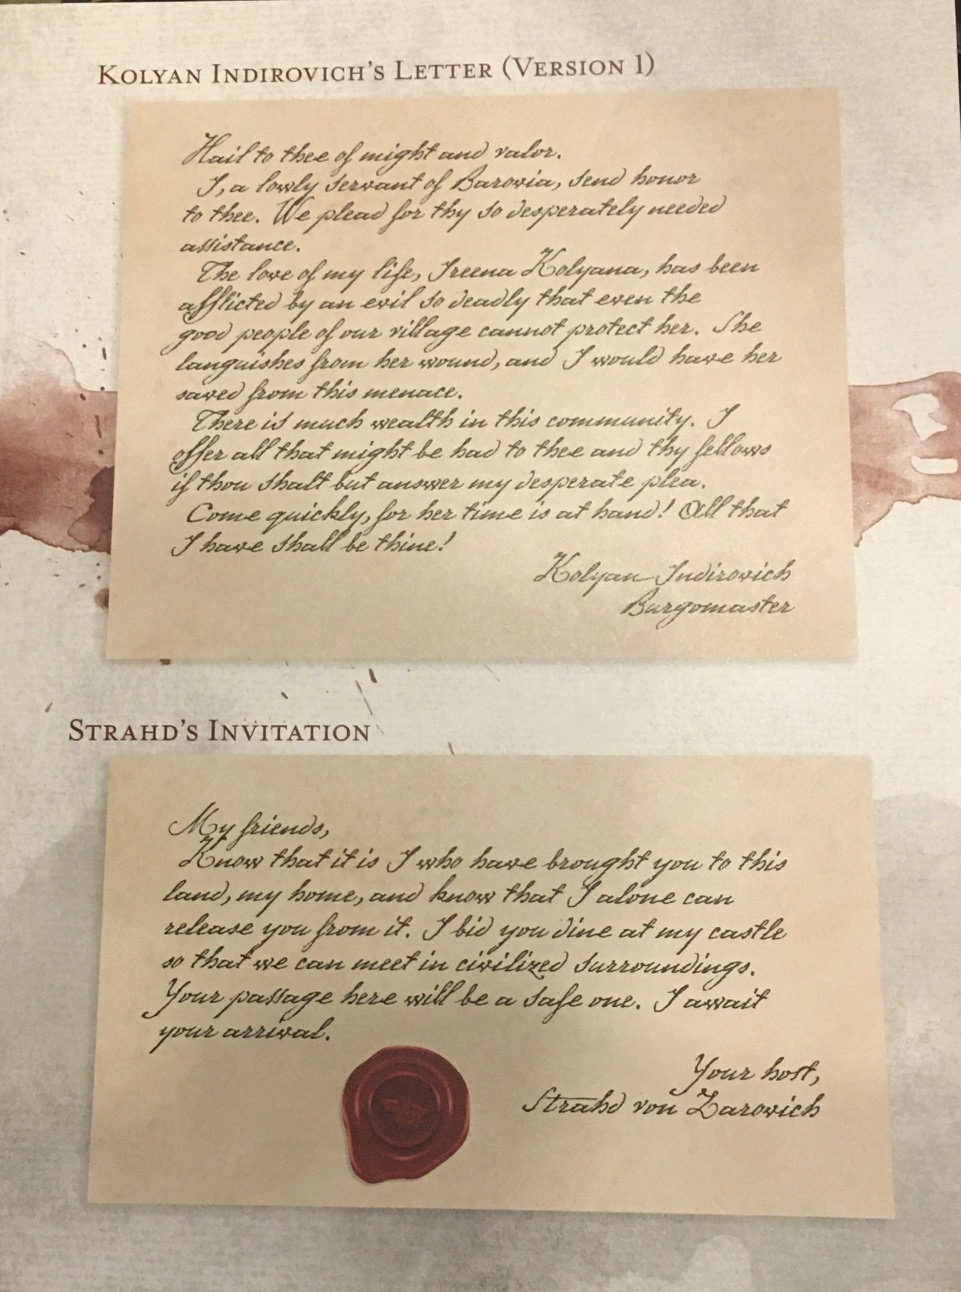 Kolyan Indirovich's Letter (Version 1)
Hail to thee of might and valor.
I, a lowly servant of Barovia, send honor
to thee. We plead for thy so desperately needed
assistance.
The love of my life, Ireena Kolyana, has been
afflicted by an evil so deadly that even the
good people of our village cannot protect her. She
languishes from her wound, and I would have her
saved from this menace.
There is much wealth in this community. I
offer all that might be had to thee and thy fellows
if thou shalt but answer my desperate plea.
Come quickly, for her time is at hand! All that
I have shall be thine!
Kolyan Indirovich
Burgomaster
Strahd's Invitation
My friends,
Know that it is I who have brought you to this
land, my home, and know that I alone can
release you from it. I bid you dine at my castle
so that we can meet in civilized surroundings.
Your passage here will be a safe one. I await
your arrival.
Your host,
Strahd von Zarovich